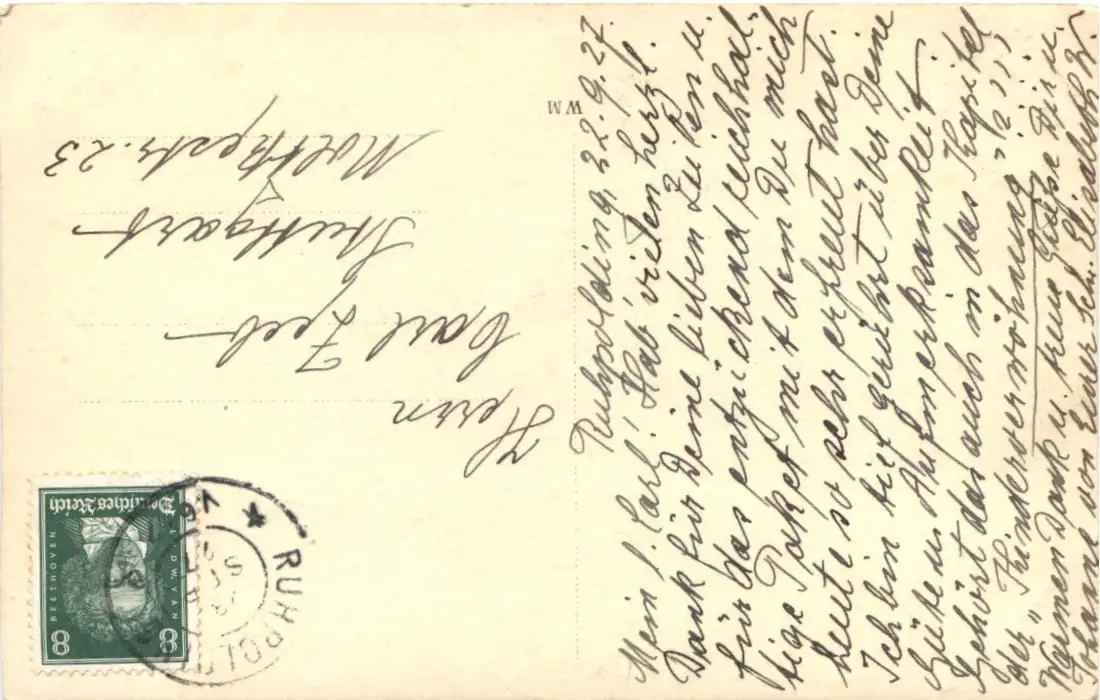 Ruhpolding, 22.9.27.
Mein l. Carl! Hab' vielen herzl.
Dank für Deine lieben Zeilen u.
für das entzückend reichhal-
tige Paket mit dem Du mich
heute so sehr erfreut hast.
Ich bin tief gerührt über Deine
Güte u. Aufmerksamkeit.
Gehört das auch in das Kapitel
der „Kinderverwöhnung"???
Warmen Dank u. treue Grüße Dir u.
von Eurer Schw. Elisabeth W.
Herrn
Carl Zeeb
Stuttgart
Moltkestr. 23
W M
Deutsches Reich
L. v. D. W. VAN
BEETHOVEN
8 8
RUHPOLDING